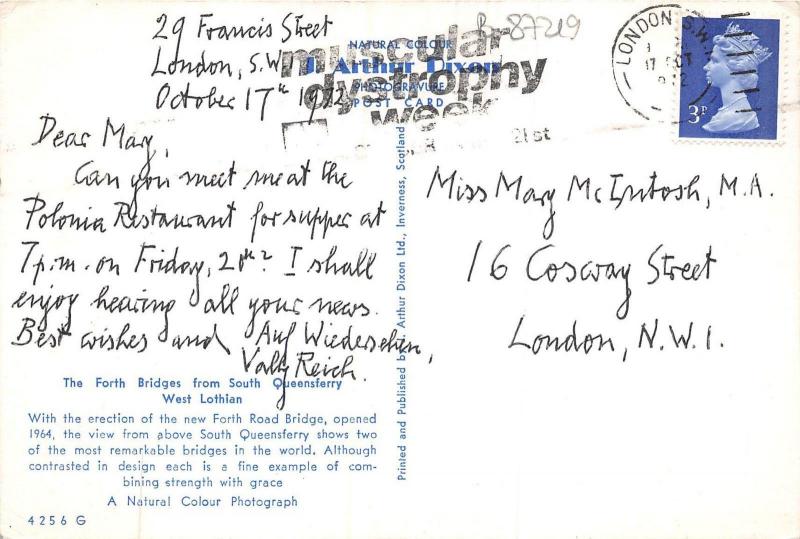 29 Francis Street
London, S.W.1
October 17th 1972
Dear Mary,
Can you meet me at the
Polonia Restaurant for supper at
7 p.m. on Friday, 20th? I shall
enjoy hearing all your news.
Best wishes and Auf Wiedersehen,
Vally Reich.
The Forth Bridges from South Queensferry
West Lothian
With the erection of the new Forth Road Bridge, opened
1964, the view from above South Queensferry shows two
of the most remarkable bridges in the world. Although
contrasted in design each is a fine example of com-
bining strength with grace
A Natural Colour Photograph
4256 G
NATURAL COLOUR
J. Arthur Dixon
PHOTOGRAVURE
POST CARD
muscular
dystrophy
week
21st
Printed and Published by J. Arthur Dixon Ltd., Inverness, Scotland
87219
LONDON S.W.
17 OCT
3P
Miss Mary McIntosh, M.A.
16 Cosway Street
London, N.W.1.